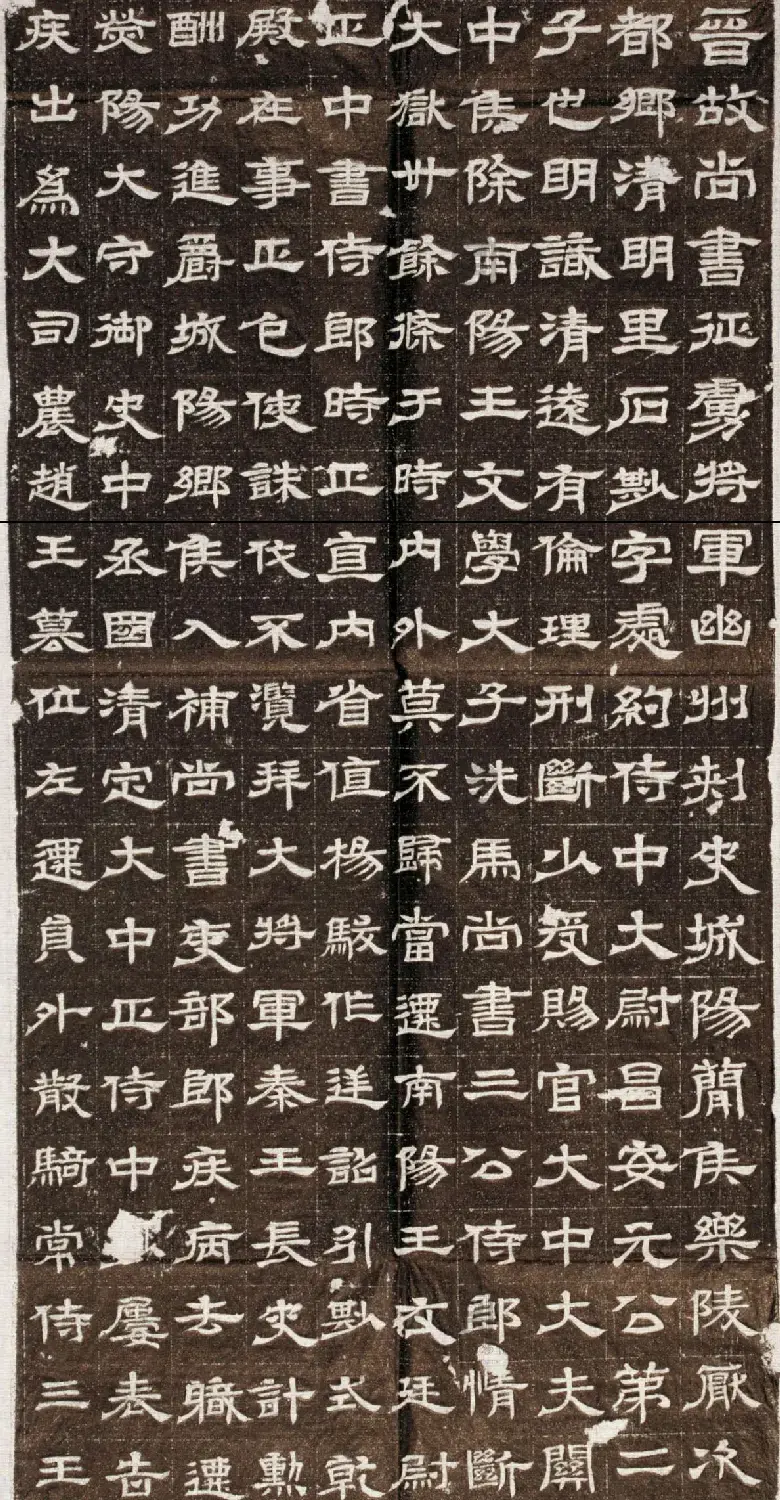 晉故尚書征虜將軍幽州刾史城陽簡侯樂陵厭次
都鄉清明里石尠字處約侍中大尉昌安元公第二
子也明識清遠有倫理刑斷少受賜官大中大夫關
中侯除南陽王文學大子洗馬尚書三公侍郎情斷
大獄卅餘條于時內外莫不歸當遷南陽王文廷尉
正中書侍郎時正直內省值楊駿作逆詔引尠式乾
殿在事正色使誅伐不濫拜大將軍秦王長史計勳
酬功進爵城陽鄉侯入補尚書吏部郎疾病去職遷
熒陽大守御史中丞國清定大中正侍中屢表告
疾出為大司農趙王篡位左遷員外散騎常侍三王